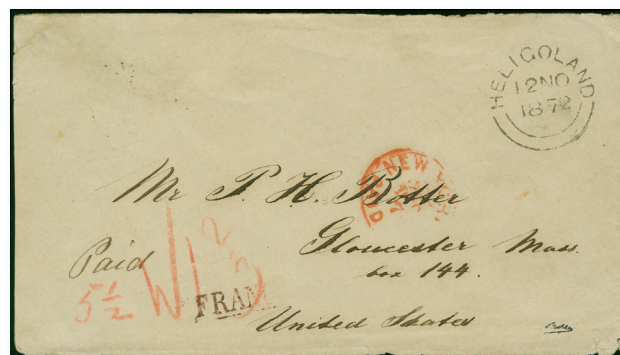 HELIGOLAND
12 NO
1872
NEW
PAID
Mr P. H. Botter
Paid
Gloucester Mass.
box 144.
5 1/2
FRAN
United States